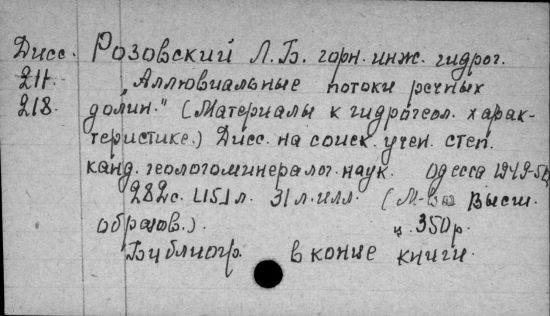 Дисс. Розовский Л.Б. горн. инж. гидрог.
211. „Аллювиальные потоки речных
218. долин." (Материалы к гидрогеол. харак-
теристике.) Дисс. на соиск. учен. степ.
канд. геологоминералог. наук. Одесса 1949-50
282с. 31 л. илл. (М-во Высш.
образов.). ц. 350р.
Библиогр. в конце книги.